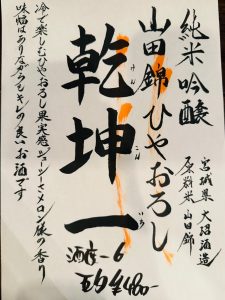 純米吟醸
宮城県 大沼酒造
原料米 山田錦
山田錦ひやおろし
乾坤一
けん こん いち
酒度-6
冷で楽しむひやおろし果実感ジューシーさメロン様の香り
味幅はありながらもキレの良いお酒です